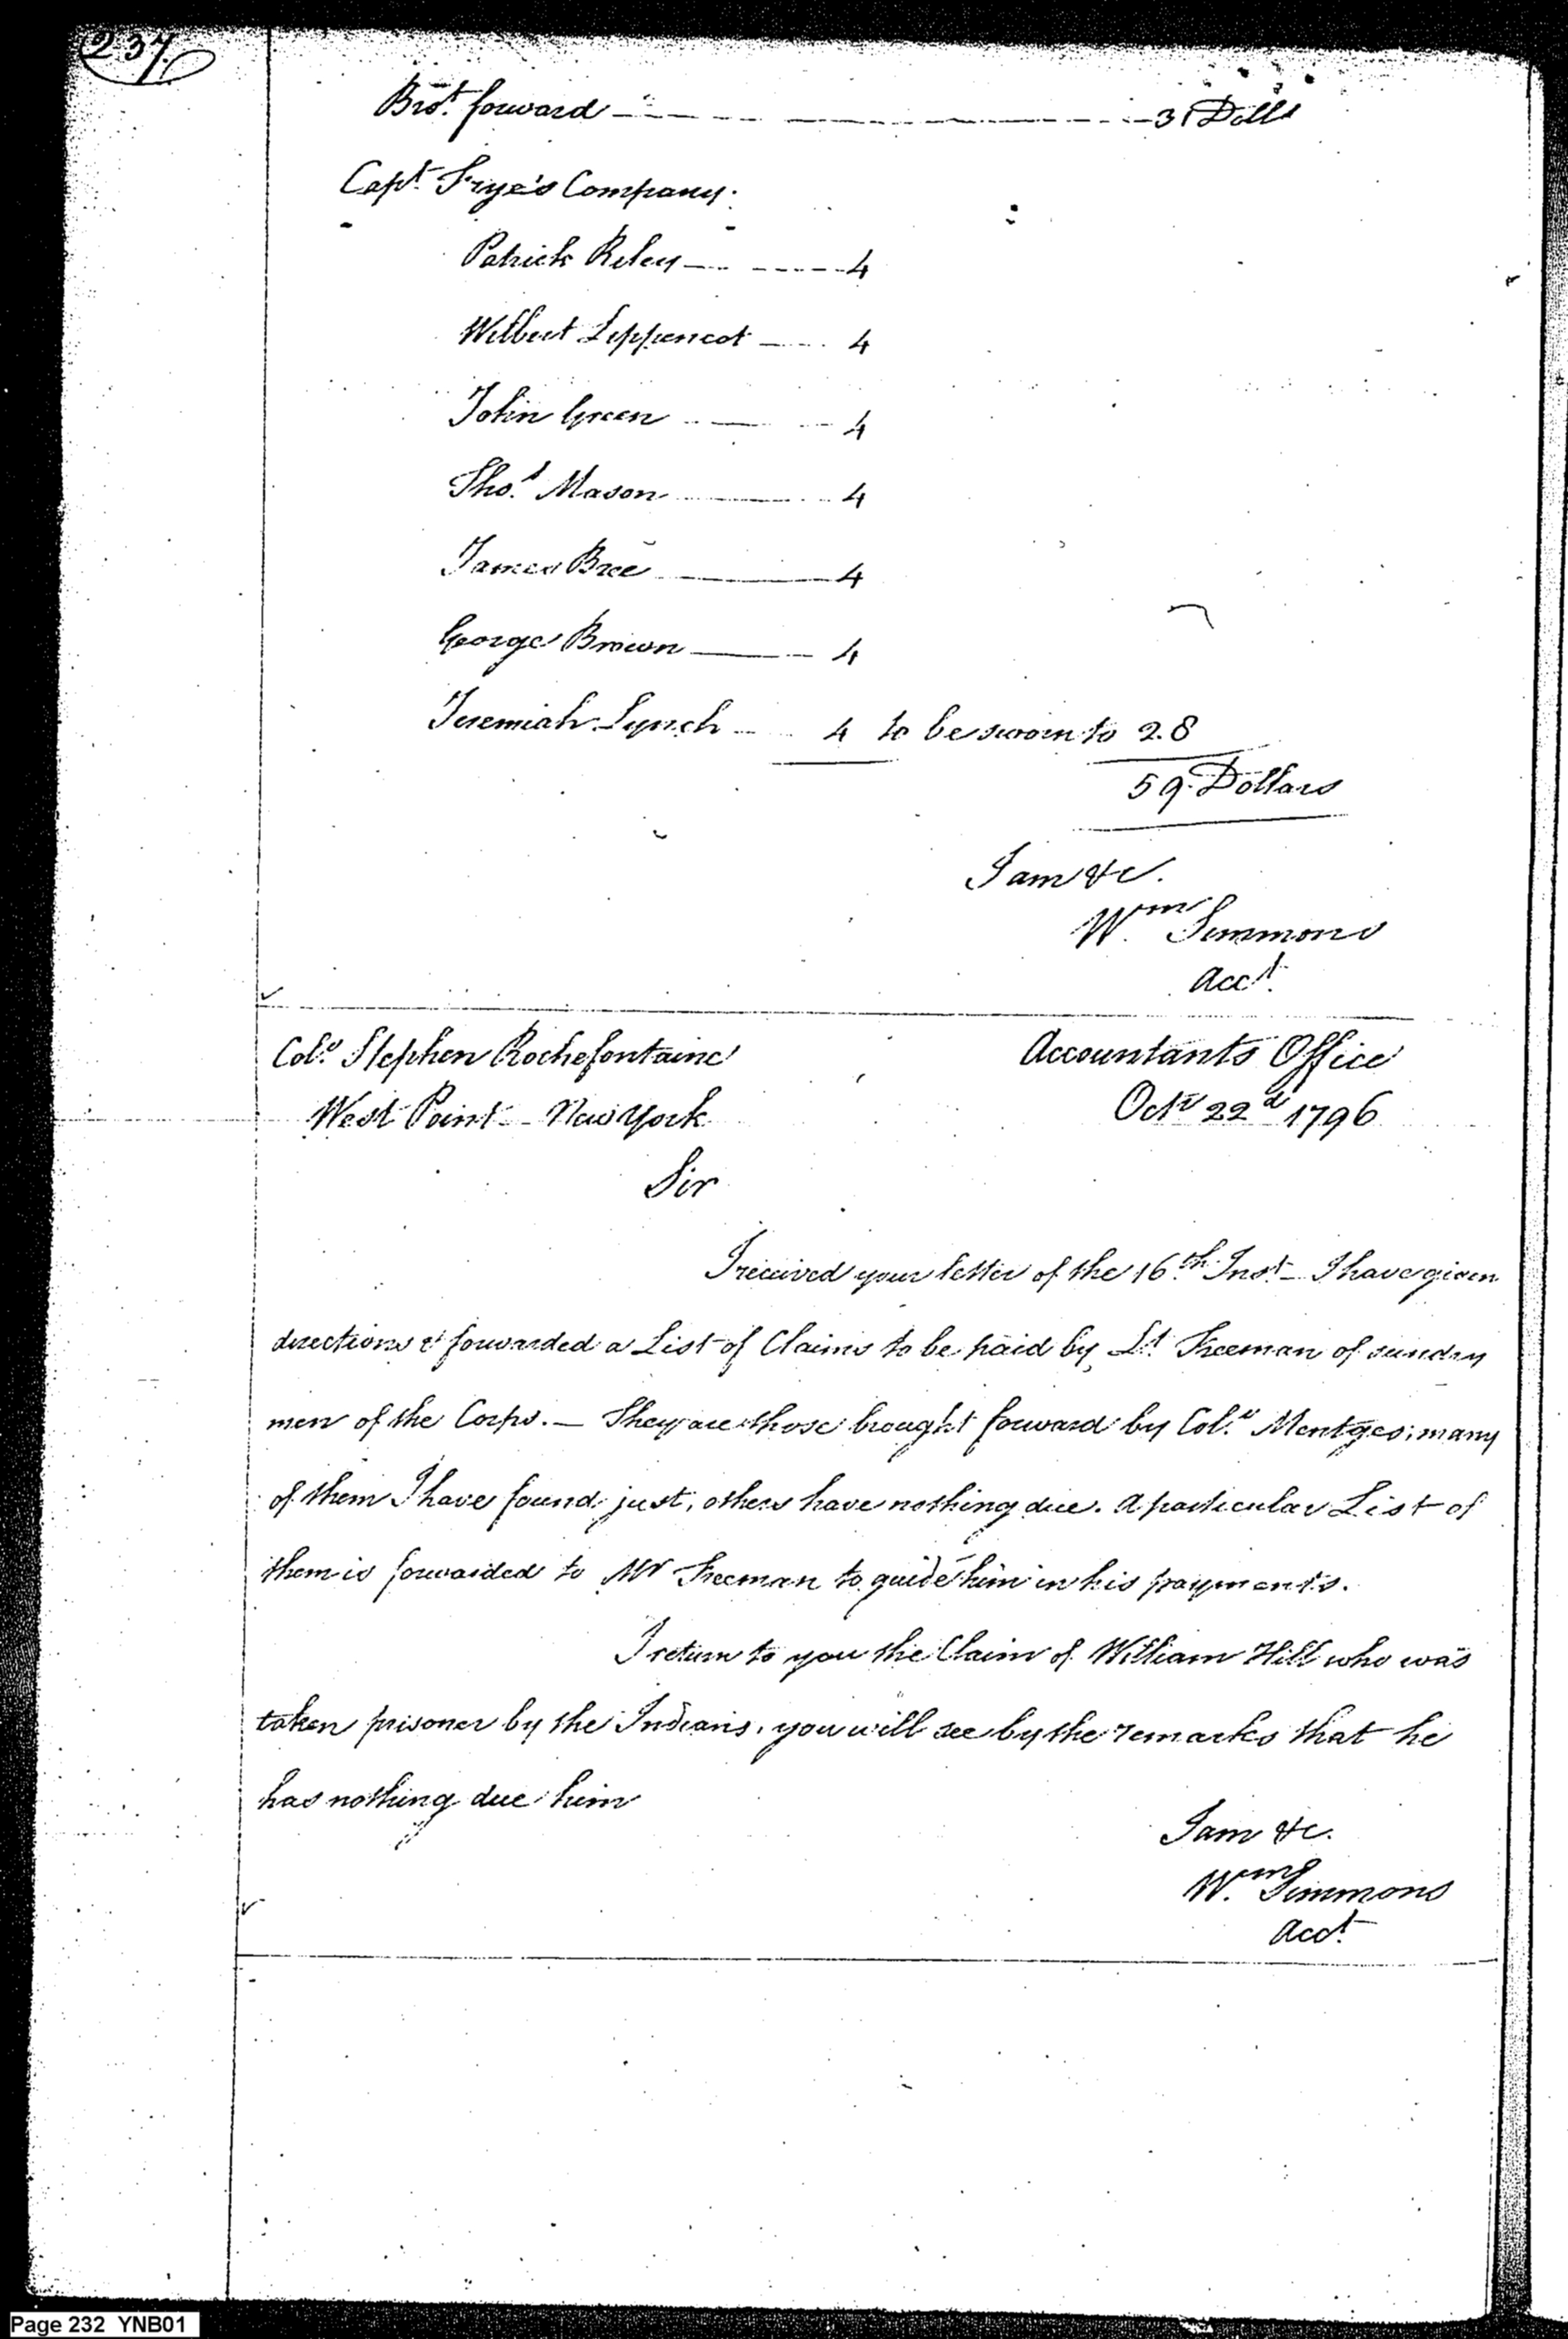 237.
Bro.t forward 31 Doll.s
Cap.t Frye's Company.
Patrick Riley 4
Wilbert Leppencot 4
John Green 4
Tho.s Mason 4
James Bree 4
George Brown 4
Jeremiah Lynch 4 to be sworn to 28
59. Dollars
I am &c.
W.m Simmons
Acc.t
Col.o Stephen Rochefontaine Accountants Office
West Point - New York Oct.r 22.d 1796
Sir
I received your letter of the 16.th Ins.t - I have given
directions & forwarded a List of Claims to be paid by L.t Freeman of sundry
men of the Corps. - They are those brought forward by Col.o Mentges; many
of them I have found just, others have nothing due. A particular List of
them is forwarded to Mr Freeman to guide him in his payments.
I return to you the Claim of William Hill who was
taken prisoner by the Indians, you will see by the remarks that he
has nothing due him
I am &c.
W.m Simmons
Acc.t
Page 232 YNB01